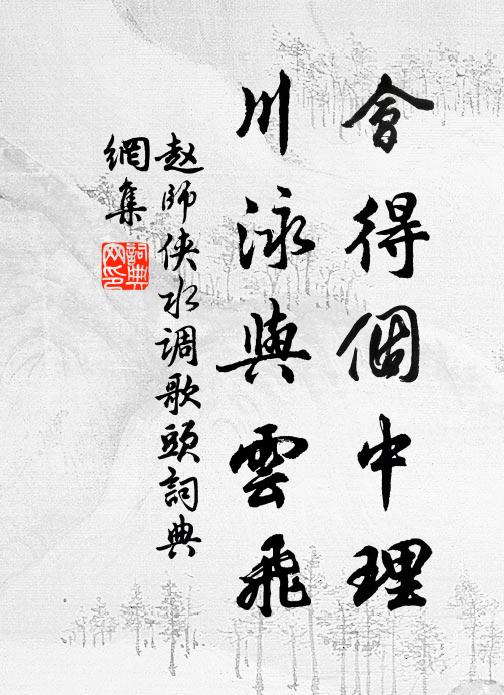 會得個中理
川泳與雲飛
赵師侠水调歌頭詞典
網集
詞典
网印